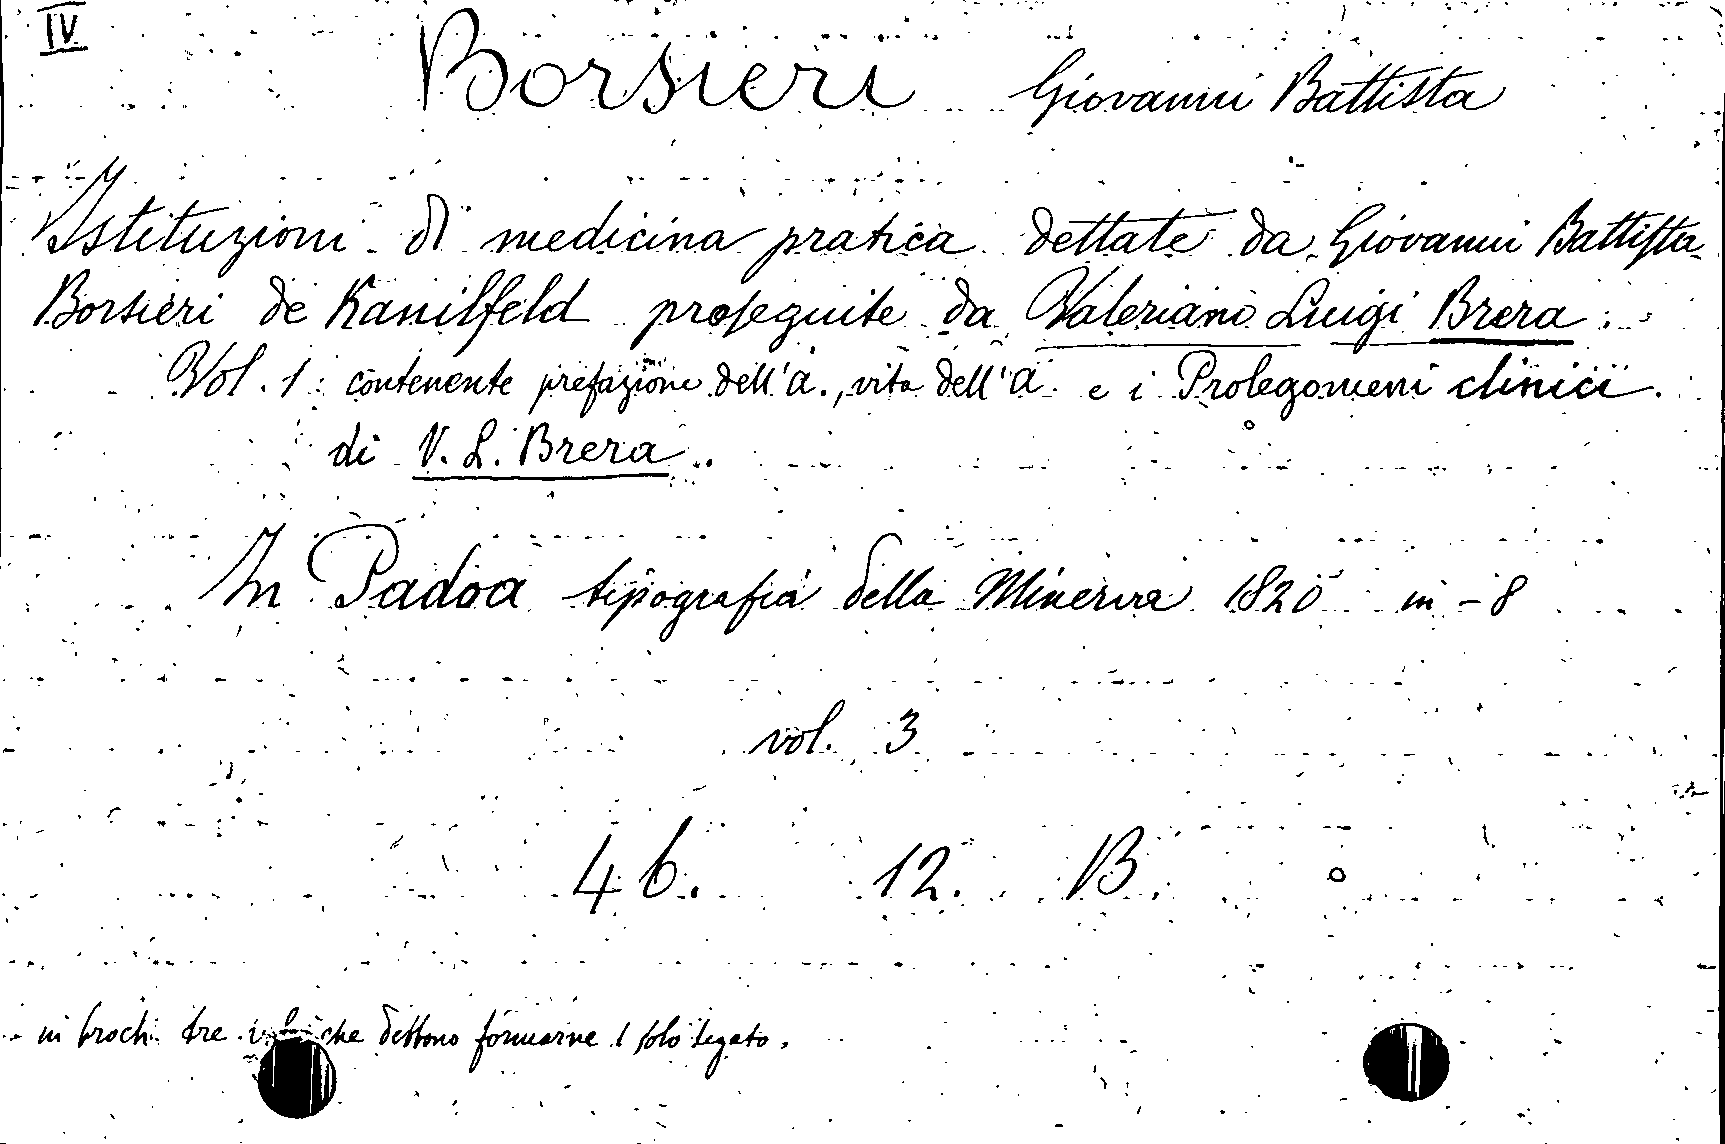 IV
Borsieri Giovanni Battista
Istituzioni di medicina pratica dettate da Giovanni Battista
Borsieri de Kanilfeld proseguite da Valeriano Luigi Brera.
Vol. 1: contenente prefazione dell'a., vita dell'a. e i Prolegomeni clinici
di V. L. Brera.
In Padoa tipografia della Minerva 1820 in-8
vol. 3
46. 12. B.
in broch. tre che debbono formarne 1 solo legato.